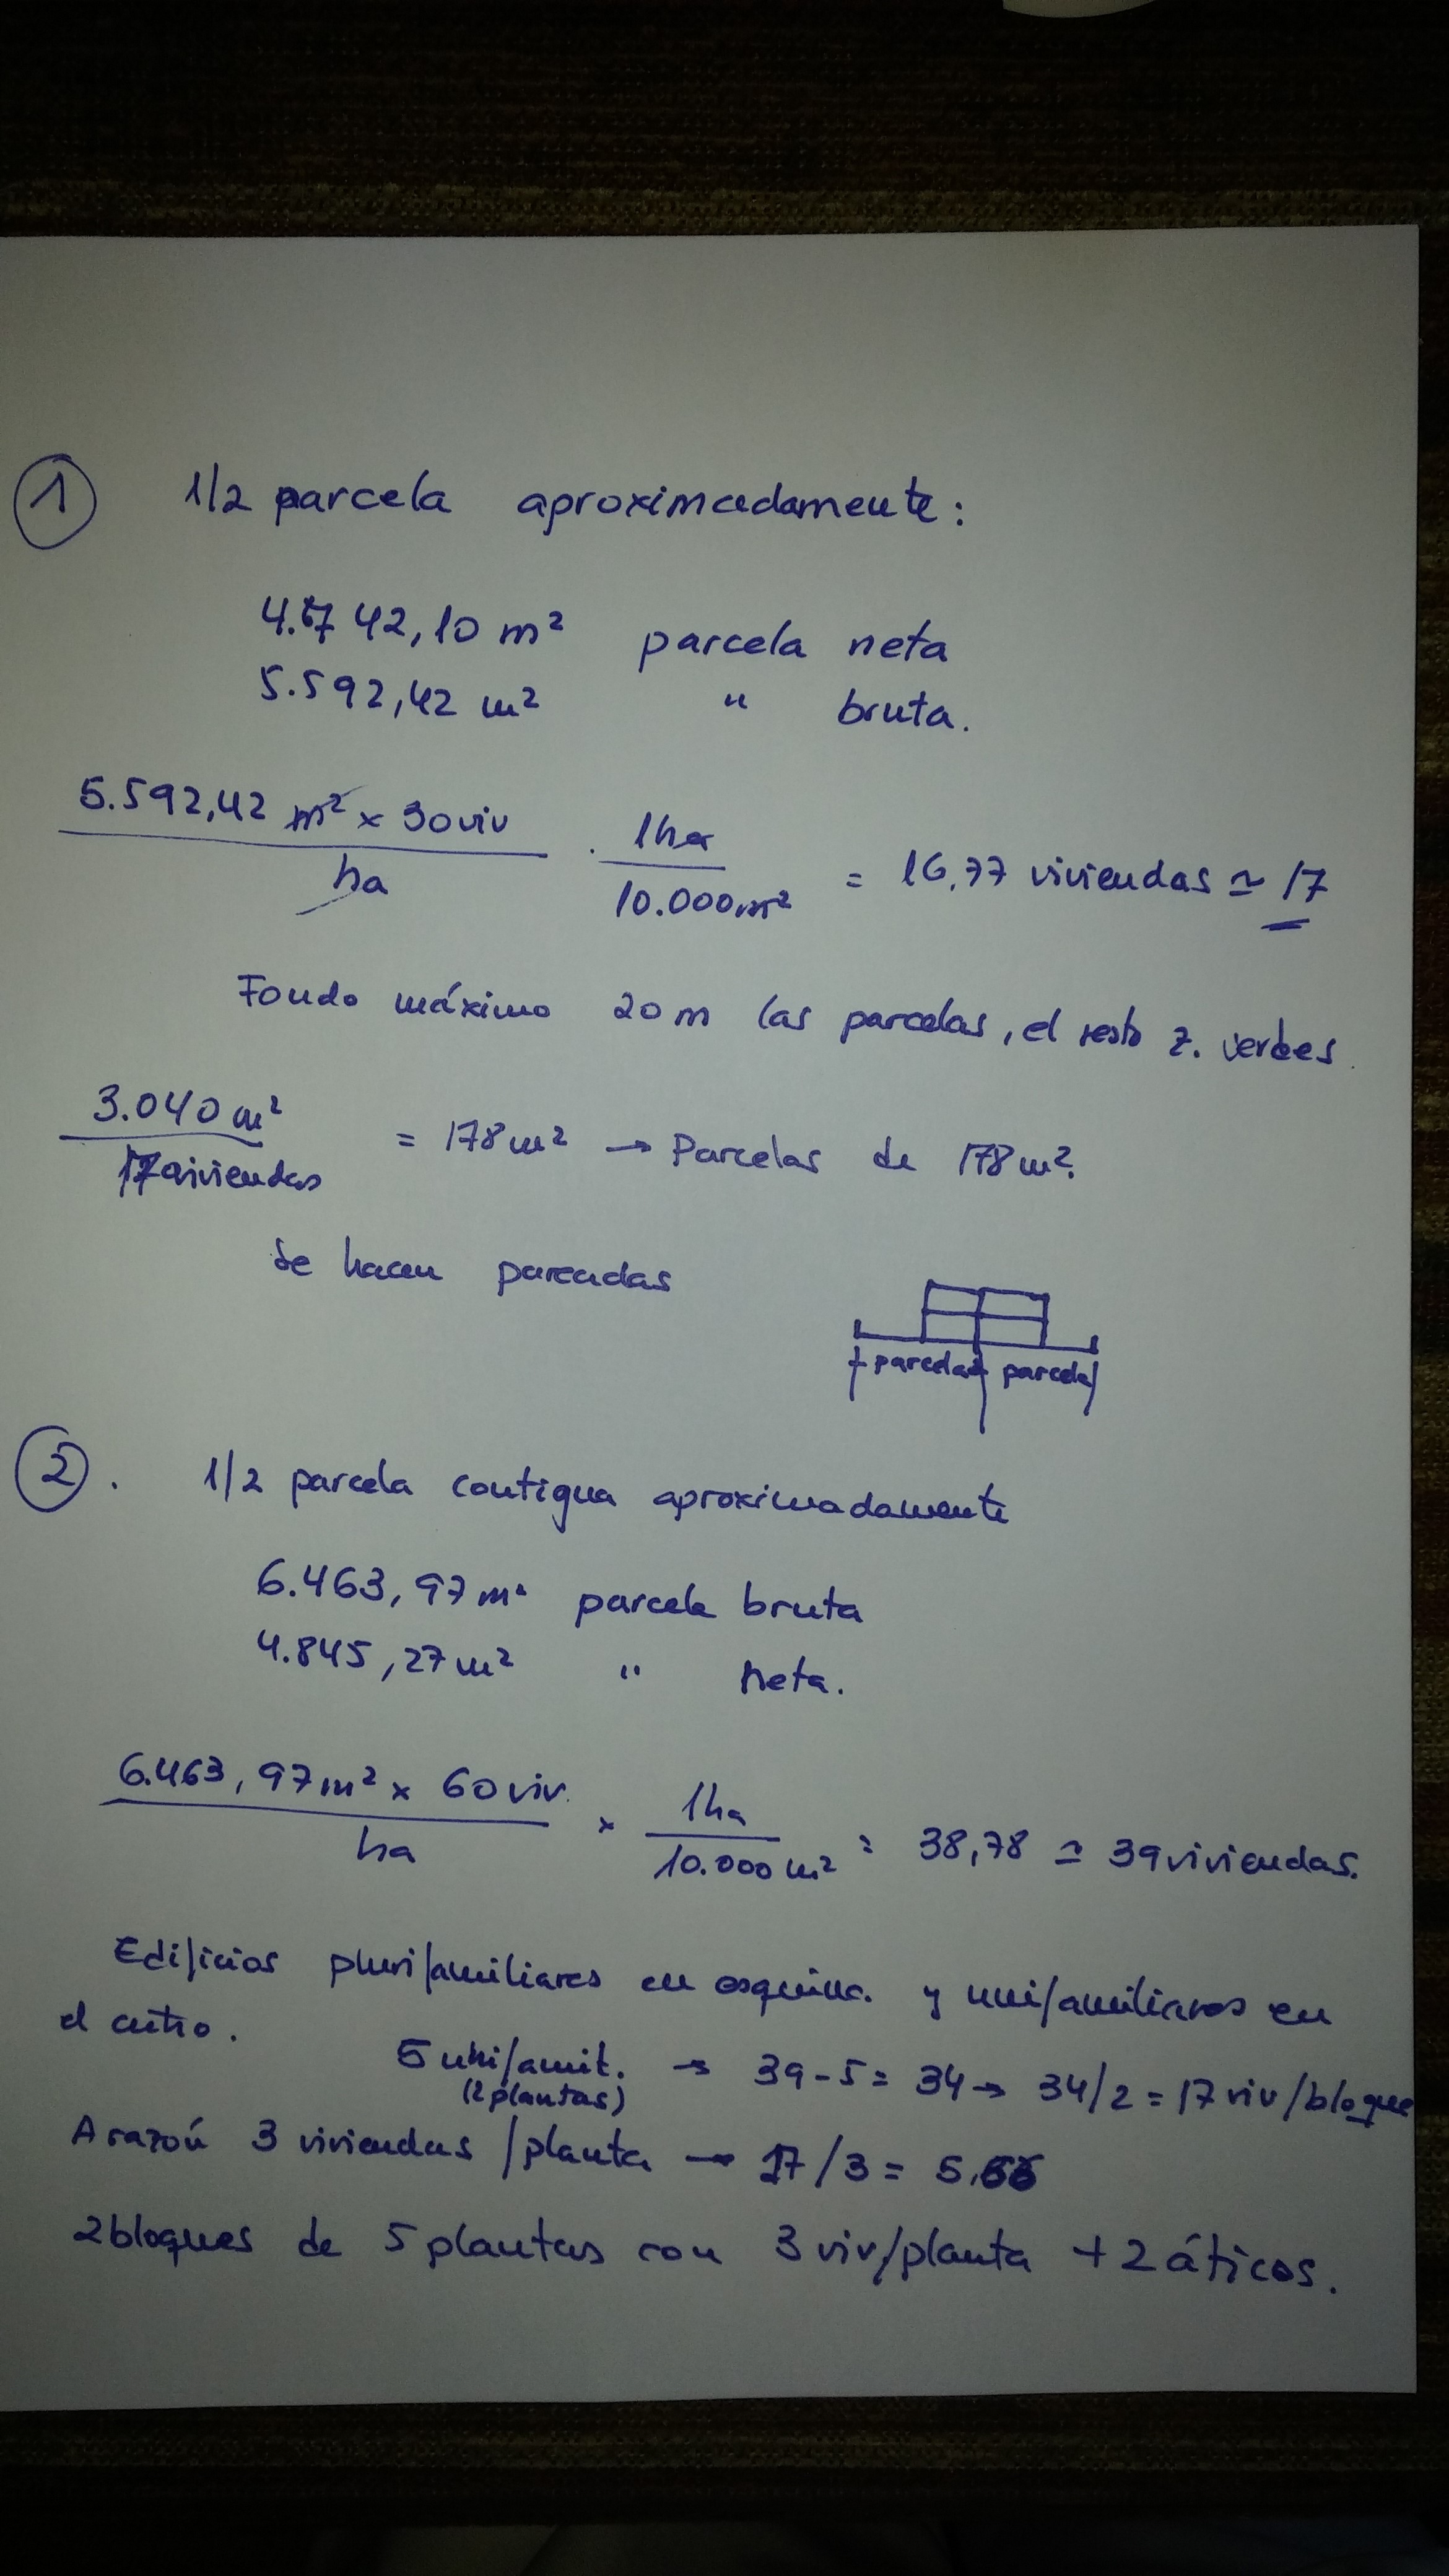 1
1/2 parcela aproximadamente:
4.742,10 m² parcela neta
5.592,42 m² " bruta.
5.592,42 m² x 30 viv / ha · 1ha / 10.000 m² = 16,77 viviendas ≃ 17
Fondo máximo 20 m las parcelas, el resto z. verdes.
3.040 m² / 17 viviendas = 178 m² → Parcelas de 178 m².
Se hacen pareadas
parcela parcela
2. 1/2 parcela contigua aproximadamente
6.463,97 m² parcela bruta
4.845,27 m² " neta.
6.463,97 m² x 60 viv. / ha x 1ha / 10.000 m² = 38,78 ≃ 39 viviendas.
Edificios plurifamiliares en esquina. y unifamiliares en
el centro.
5 unifamil. → 39-5 = 34 → 34/2 = 17 viv/bloque
(2 plantas)
A razón 3 viviendas/planta → 17/3 = 5,66
2 bloques de 5 plantas con 3 viv/planta + 2 áticos.